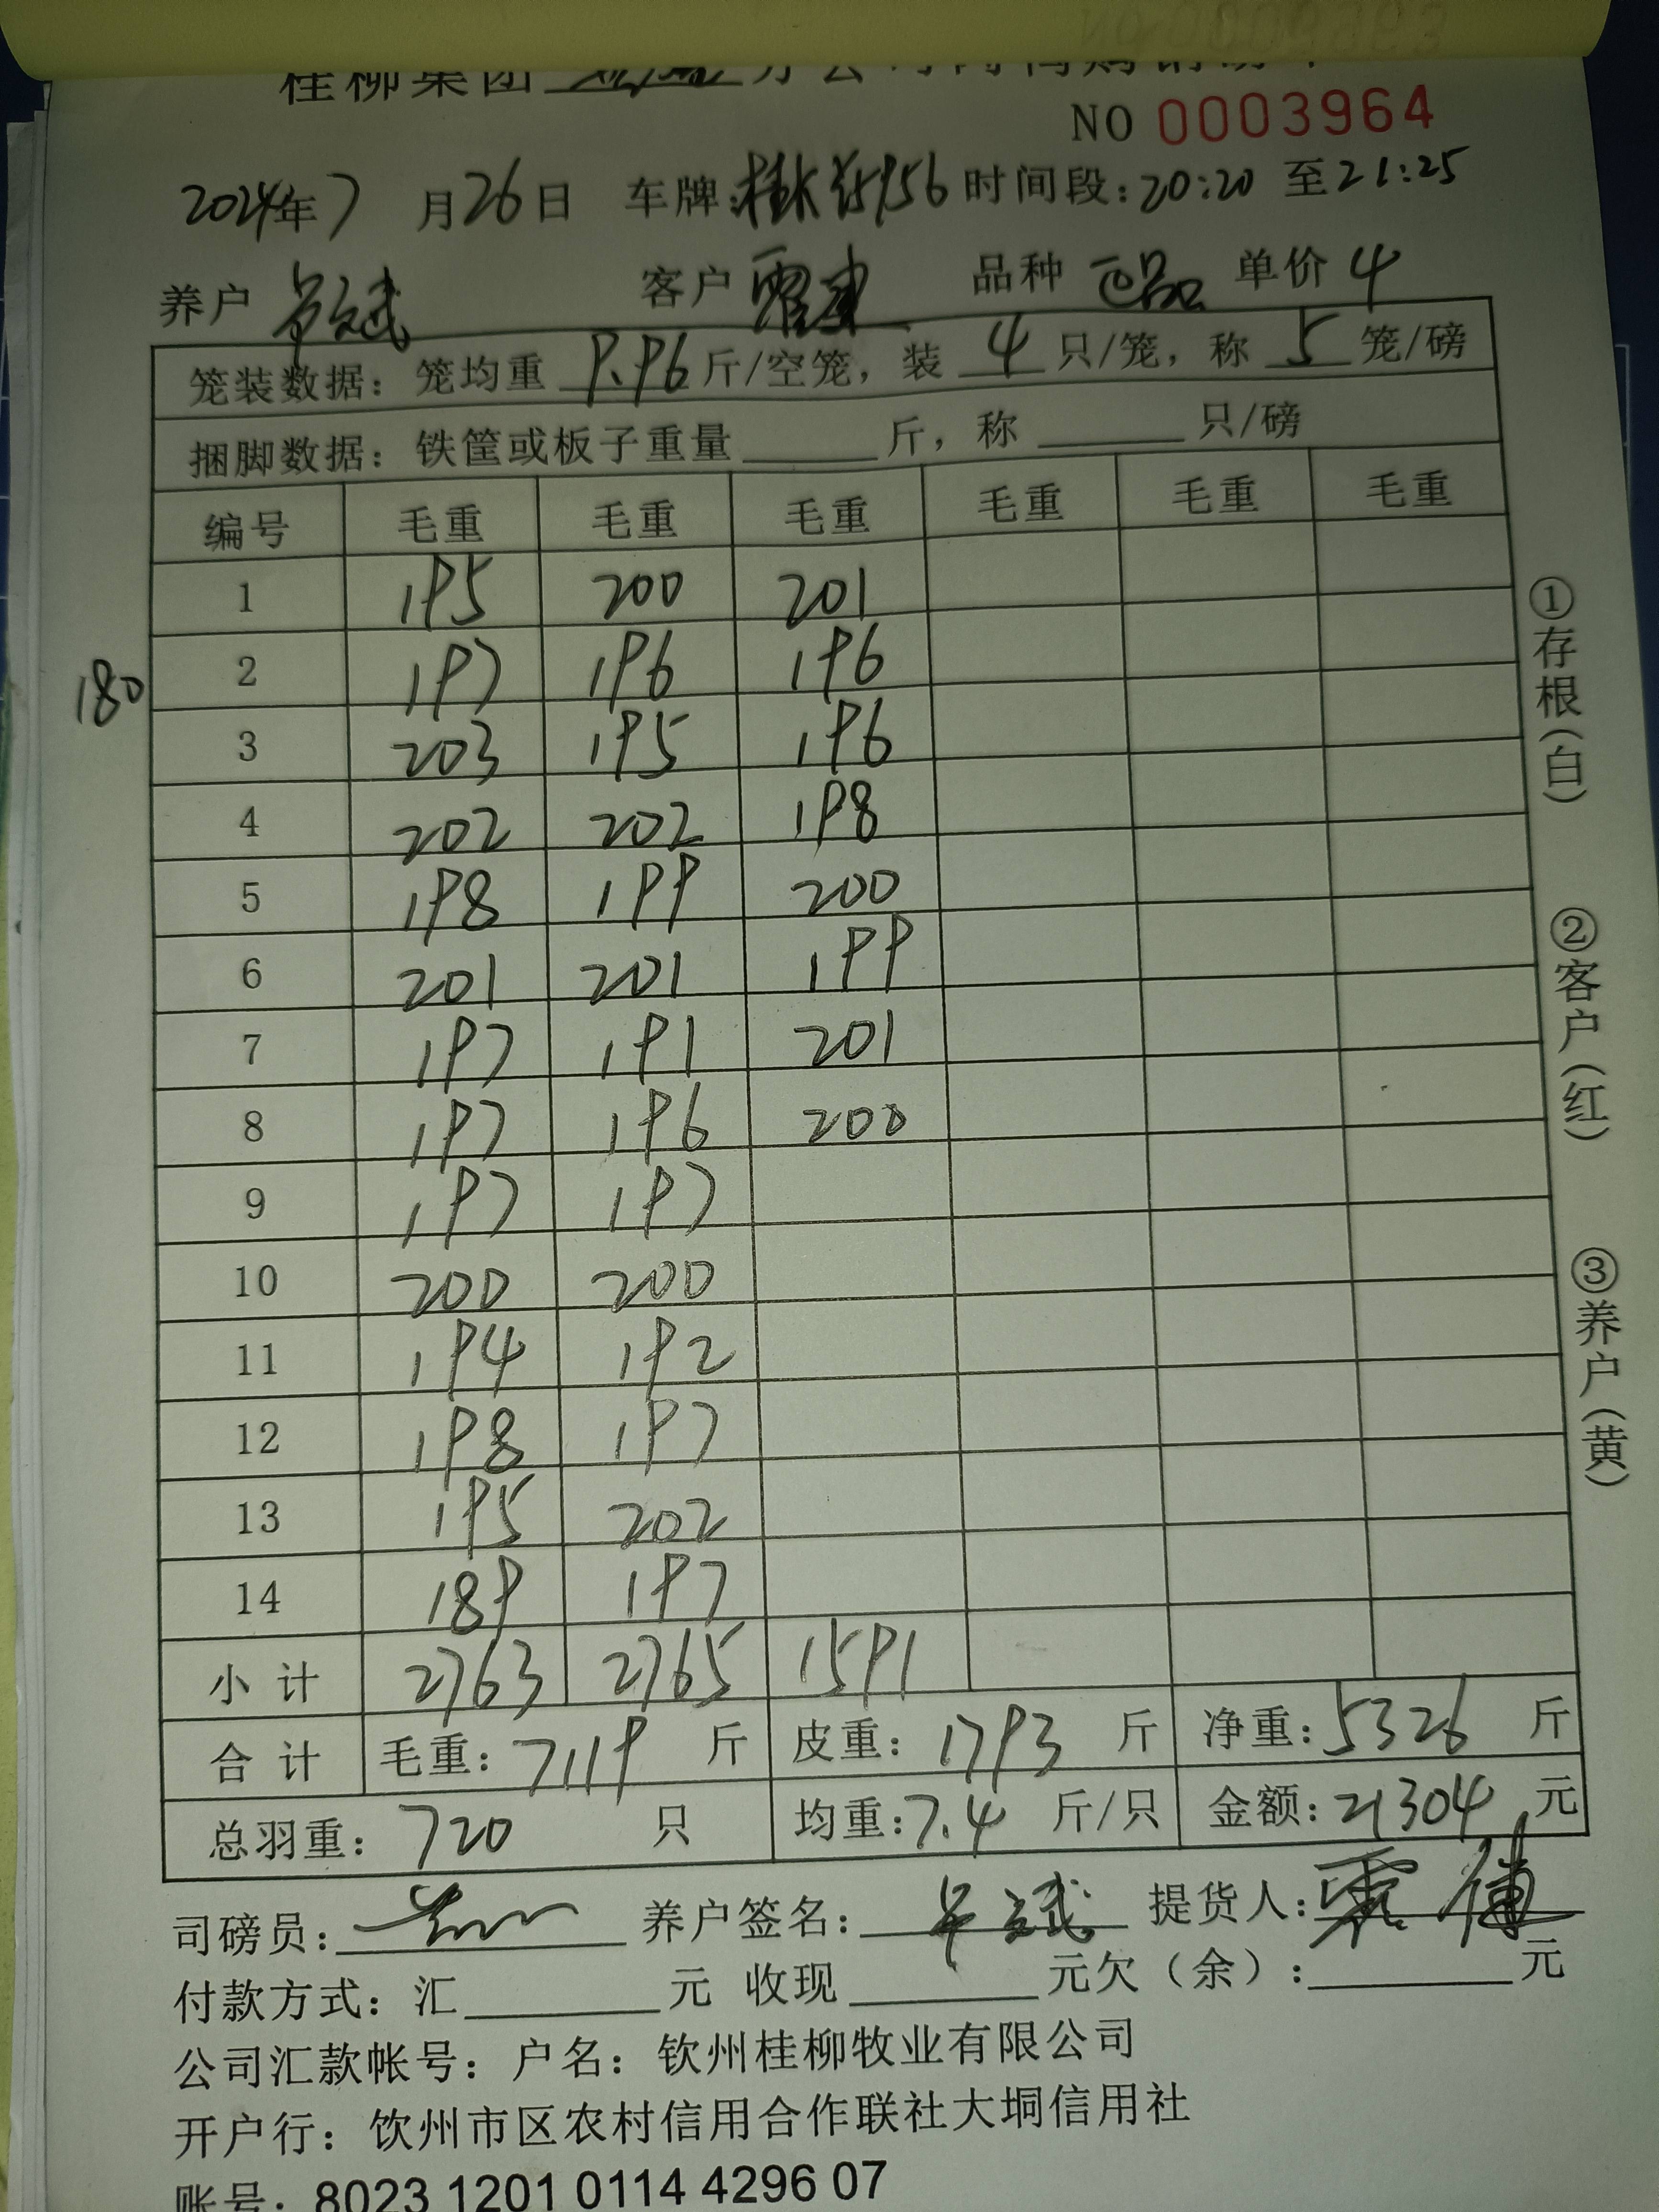 桂柳集团 分公司
NO 0003964
2024年7月26日 车牌: 时间段:20:20 至21:25
养户 客户 品种 正品 单价 4
笼装数据: 笼均重 9.96 斤/空笼, 装 4 只/笼, 称 5 笼/磅
捆脚数据: 铁筐或板子重量 斤, 称 只/磅
编号 毛重 毛重 毛重 毛重 毛重 毛重
1 195 200 201
180 2 197 196 196
3 203 195 196
4 202 202 198
5 198 199 200
6 201 201 199
7 197 191 201
8 197 196 200
9 197 197
10 200 200
11 194 192
12 198 197
13 195 202
14 189 197
小计 2763 2765 1591
合计 毛重: 7119 斤 皮重: 1793 斤 净重: 5326 斤
总羽重: 720 只 均重: 7.4 斤/只 金额: 21304 元
司磅员: 养户签名: 提货人:
付款方式: 汇 元 收现 元欠(余): 元
公司汇款帐号: 户名: 钦州桂柳牧业有限公司
开户行: 钦州市区农村信用合作联社大垌信用社
账号: 8023 1201 0114 4296 07
①存根(白)
②客户(红)
③养户(黄)